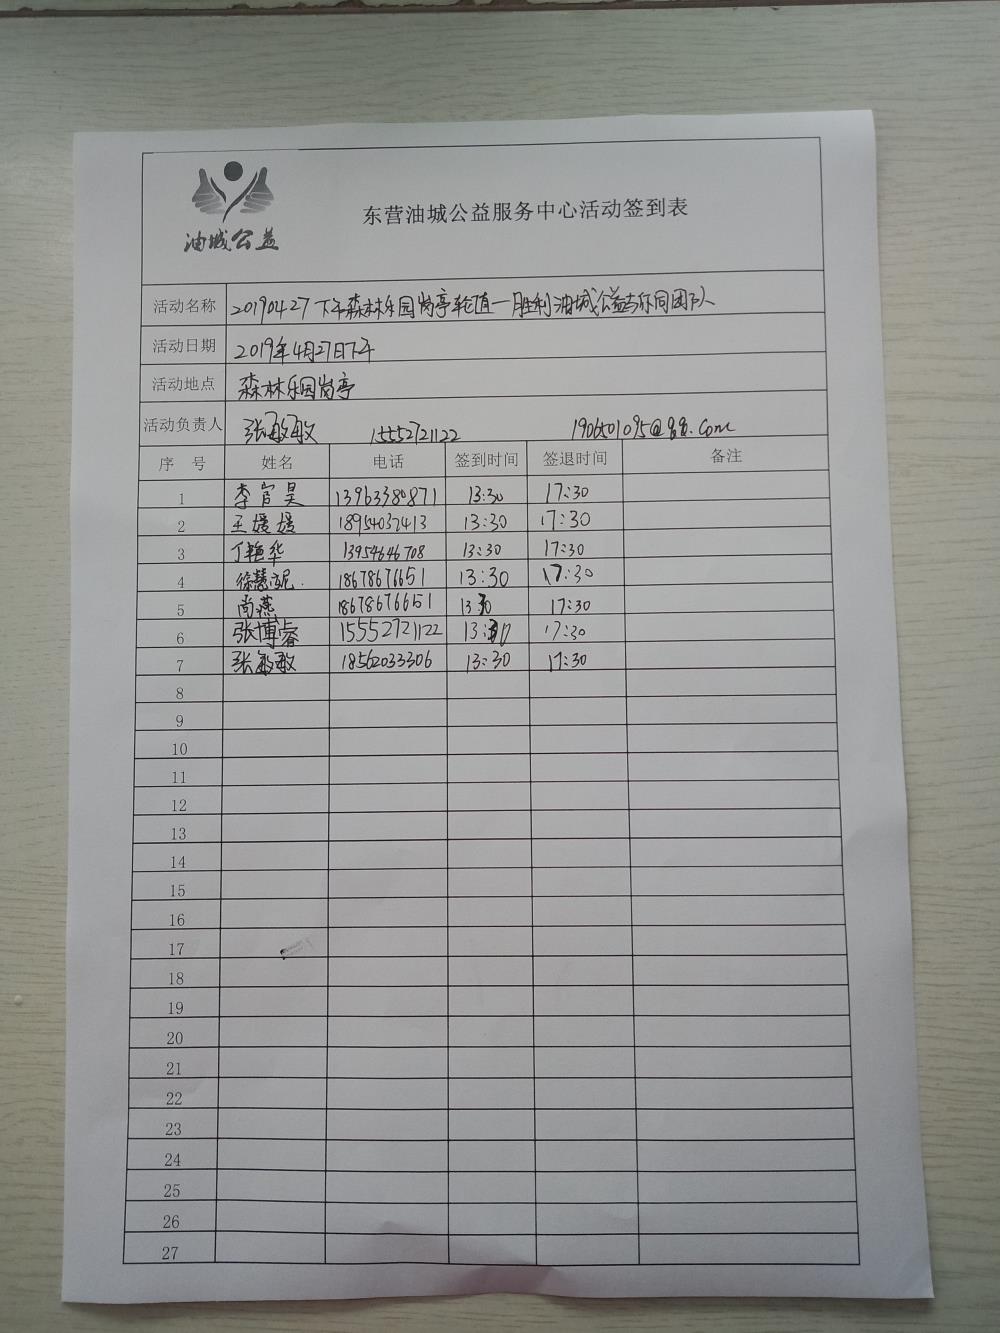 油城公益
东营油城公益服务中心活动签到表
活动名称 20190427下午森林乐园岗亭轮值一胜利油城公益与你同团队
活动日期 2019年4月27日下午
活动地点 森林乐园岗亭
活动负责人 张敏敏 15552721122 1906501095@qq.com
序 号 姓名 电话 签到时间 签退时间 备注
1 李官昊 13963380871 13:30 17:30
2 王媛媛 18954037413 13:30 17:30
3 丁艳华 13954646708 13:30 17:30
4 徐慧妮 18678676651 13:30 17:30
5 尚燕 18678676651 13:30 17:30
6 张博睿 15552721122 13:30 17:30
7 张敏敏 18562033306 13:30 17:30
8
9
10
11
12
13
14
15
16
17
18
19
20
21
22
23
24
25
26
27